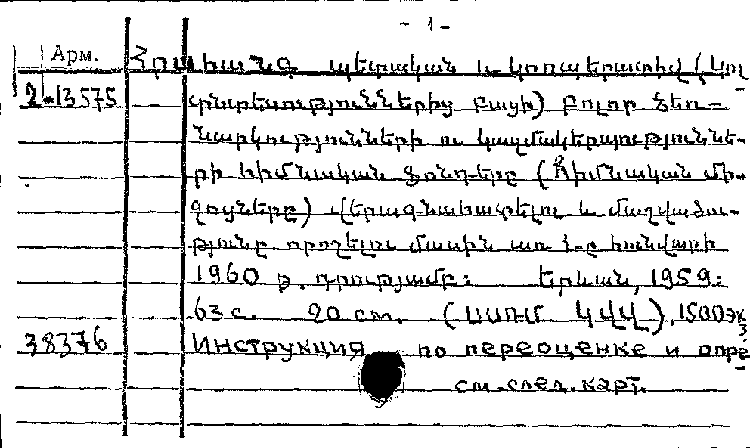 - 1 -
Арм. Հրահանգ պետական և կոոպերատիվ (կոլ
2-13575 տնտեսություններից բացի) բոլոր ձեռ-
նարկությունների ու կազմակերպություննե-
րի հիմնական ֆոնդերը (հիմնական մի-
ջոցները) վերագնահատելու և մաշվածու-
թյունը որոշելու մասին առ 1-ը հունվարի
1960 թ. դրությամբ: Երևան, 1959:
63 с. 20 см. (ՍՍՌՄ ԿՎՎ). 1500 экз.
38376 Инструкция по переоценке и опре-
см. след. карт.